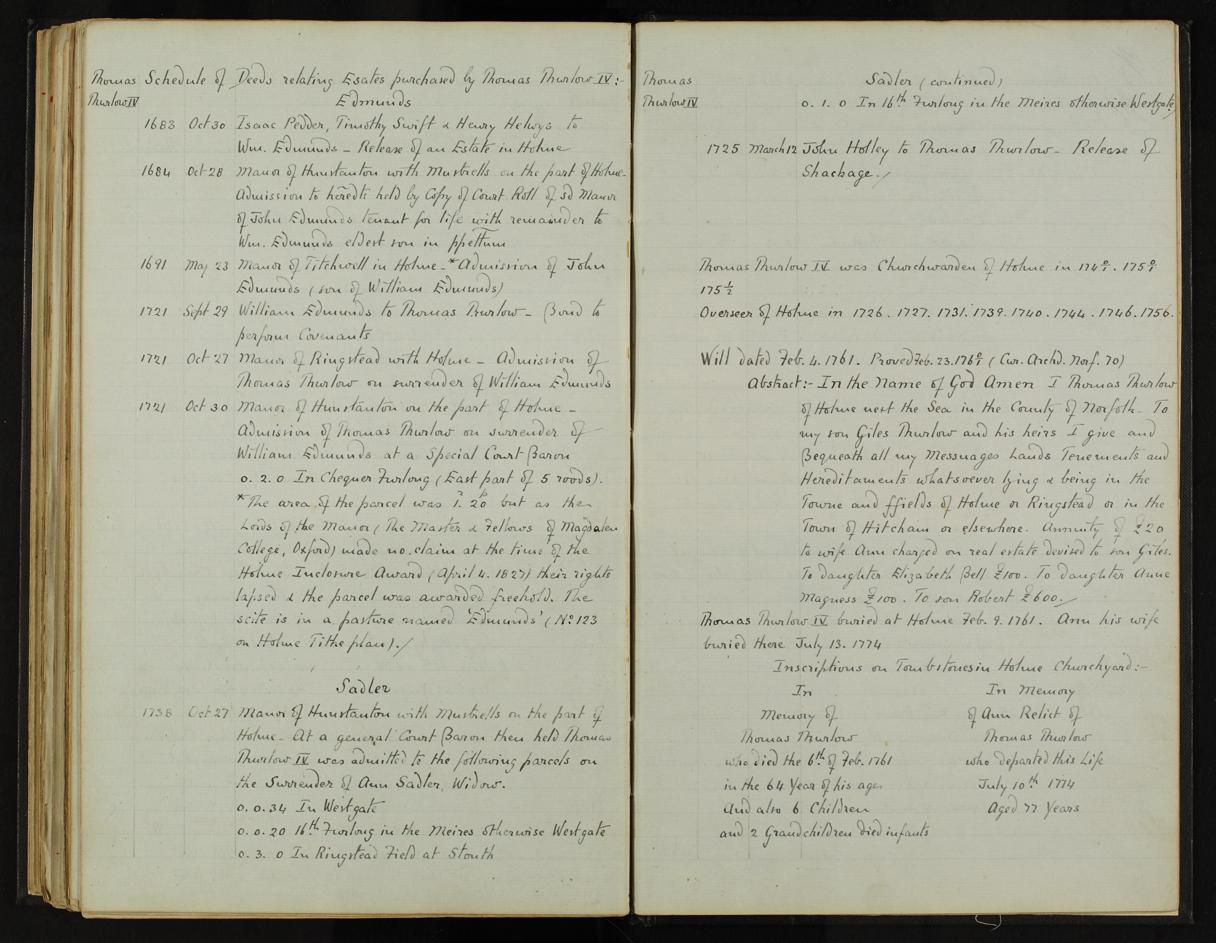 Thomas Schedule of Deeds relating Esates purchased by Thomas Thurlow IV :-
Thurlow IV Edmunds
1683 Oct 30 Isaac Pedder, Timothy Swift & Henry Helwys to
Wm. Edmunds - Release of an Estate in Holme
1684 Oct 28 Manor of Hunstanton with Mustrells on the part of Holme-
Admission to heredts held by Copy of Court Roll of sd Manor
of John Edmunds tenant for life with remainder to
Wm. Edmunds eldest son in ppettum
1691 May 23 Manor of Titchwell in Holme - * Admission of John
Edmunds (son of William Edmunds)
1721 Sept 29 William Edmunds to Thomas Thurlow - Bond to
perform Covenants
1721 Oct 27 Manor of Ringstead with Holme - Admission of
Thomas Thurlow on surrender of William Edmunds
1721 Oct 30 Manor of Hunstanton on the part of Holme -
Admission of Thomas Thurlow on surrender of
William Edmunds at a Special Court Baron
0. 2. 0 In Chequer Furlong (East part of 5 roods).
* The area of the parcel was 1. 20 but as the
Lords of the Manor (The Master & Fellows of Magdalen
College, Oxford) made no claim at the time of the
Holme Inclosure Award (April 4. 1827) their rights
lapsed & the parcel was awarded freehold. The
scite is in a pasture named 'Edmunds' (No 123
on Holme Tithe plan)./
Sadler
1738 Oct 27 Manor of Hunstanton with Mustrells on the part of
Holme - At a general Court Baron then held Thomas
Thurlow IV was admitted to the following parcels on
the Surrender of Ann Sadler, Widow.
0. 0. 34 In Westgate
0. 0. 20 16th Furlong in the Meires otherwise Westgate
0. 3. 0 In Ringstead Field at Stouth
Thomas Sadler (continued)
Thurlow IV 0. 1. 0 In 16th Furlong in the Meires otherwise Westgate/
1725 March 12 John Holley to Thomas Thurlow - Release of
Shackage./
Thomas Thurlow IV was Churchwarden of Holme in 174 0/1 . 175 0/1
175 1/2
Overseer of Holme in 1726 . 1727. 1731. 1739. 1740 . 1744 . 1746. 1756.
Will dated Feb. 4. 1761 - Proved Feb. 23. 176 0/1 (Cur. Archd. Norf. 70)
Abstract:- In the Name of God Amen I Thomas Thurlow
of Holme next the Sea in the County of Norfolk - To
my son Giles Thurlow and his heirs I give and
Bequeath all my Messuages Lands Tenements and
Hereditaments whatsoever lying & being in the
Towne and ffields of Holme or Ringstead or in the
Town of Hitcham or elsewhere. Annuity of £20
to wife Ann charged on real estate devised to son Giles.
To daughter Elizabeth Bell £100. To daughter Anne
Magness £100. To son Robert £600./
Thomas Thurlow IV buried at Holme Feb. 9. 1761. Ann his wife
buried there July 13. 1774
Inscriptions on Tombstones in Holme Churchyard:-
In
Memory of
Thomas Thurlow
who died the 6th of Feb. 1761
in the 64 Year of his age
And also 6 Children
and 2 Grandchildren died infants
In Memory
of Ann Relict of
Thomas Thurlow
who departed this Life
July 10th 1774
Aged 77 Years